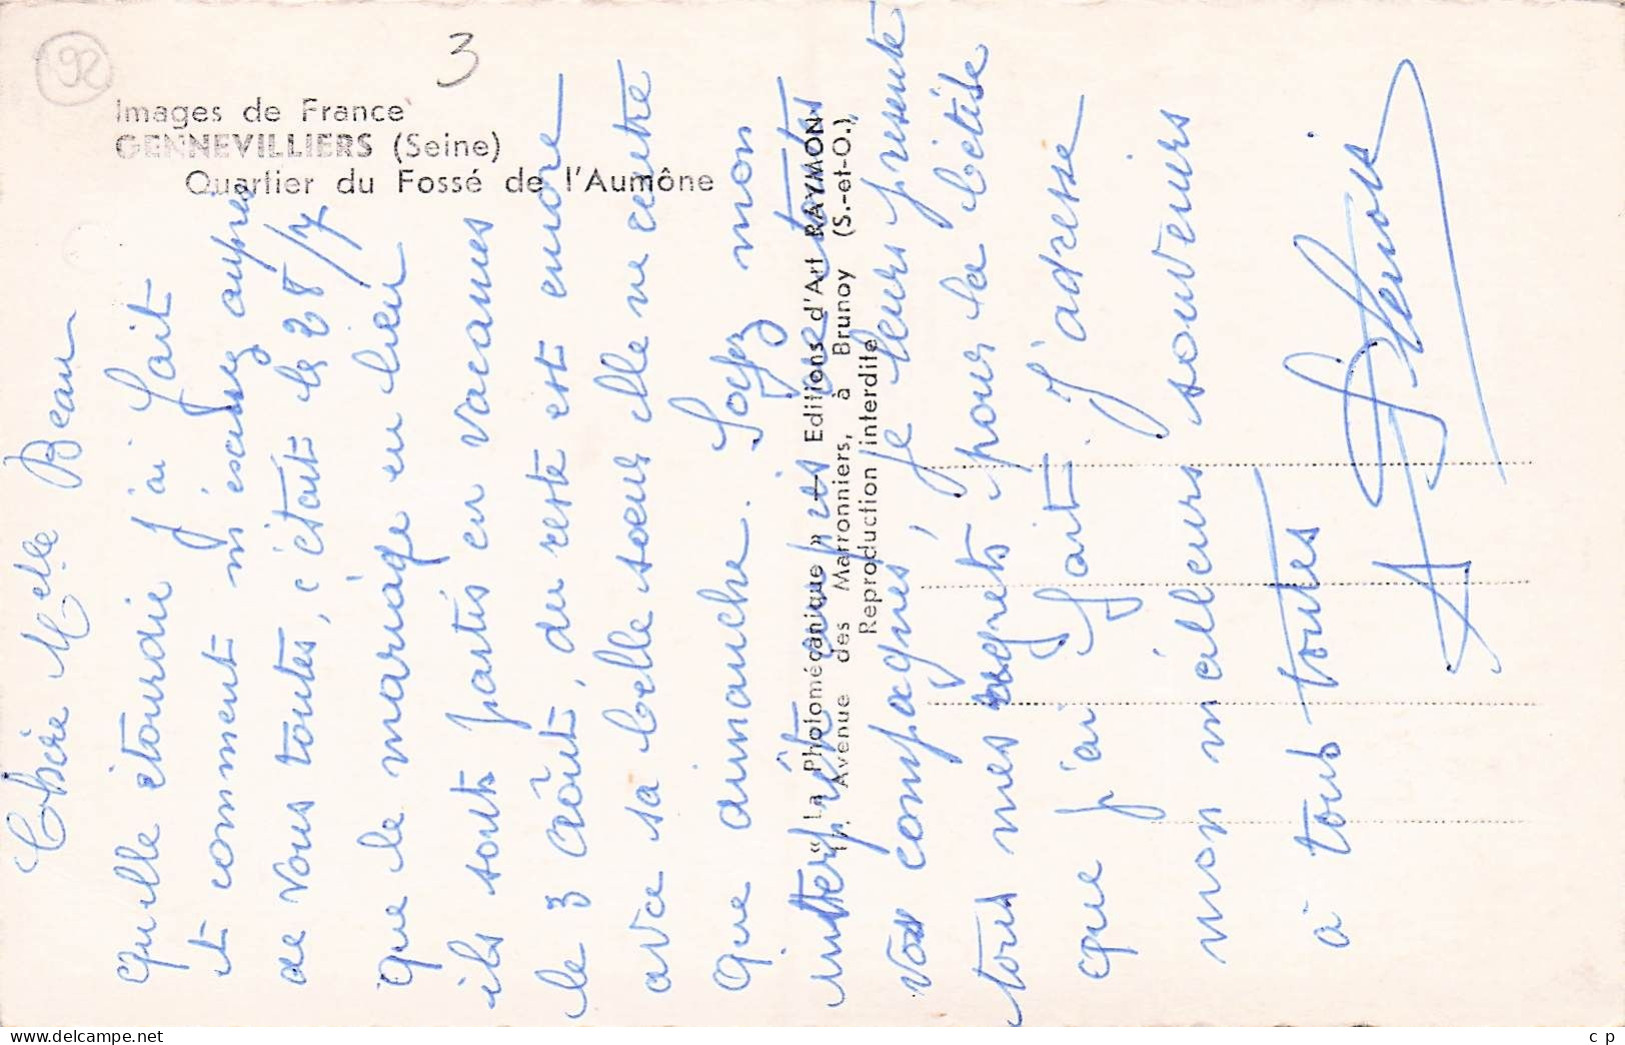 92
3
Images de France
GENNEVILLIERS (Seine)
Quartier du Fossé de l'Aumône
« La Photomécanique » — Editions d'Art RAYMON
Avenue des Marronniers, à Brunoy (S.-et-O.)
Reproduction interdite
Chère Melle Beau
quelle étourdie j'ai fait
et comment m'excusez auprès
de vous toutes, c'était le 28/7
que le mariage eu lieu
ils sont partis en vacances
le 3 Août, du reste est encore
avec sa belle soeur elle ne rentre
que dimanche. Soyez mon
interprête auprès de toutes
vos compagnes, je leurs présente
tous mes regrets pour la bêtise
que j'ai fait. J'adresse
mon meilleurs souvenirs
à tous toutes
cp